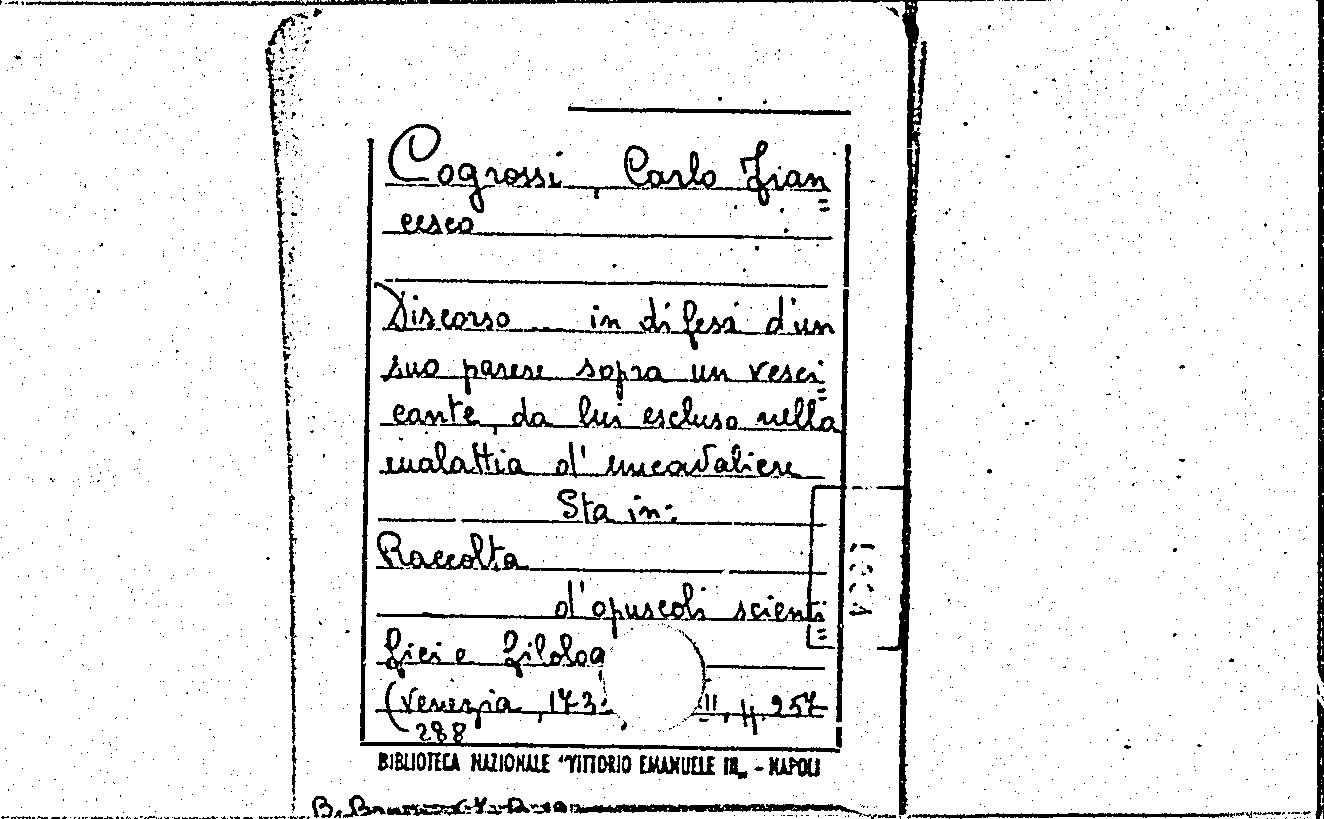 Cogrossi, Carlo Fran=
cesco
Discorso ... in difesa d'un
suo parere sopra un vesci=
cante, da lui escluso nella
malattia d'un cavaliere
Sta in:
Raccolta
d'opuscoli scienti=
fici e filolog
(Venezia, 173 II, 4. 257
288
BIBLIOTECA NAZIONALE "VITTORIO EMANUELE III" - NAPOLI